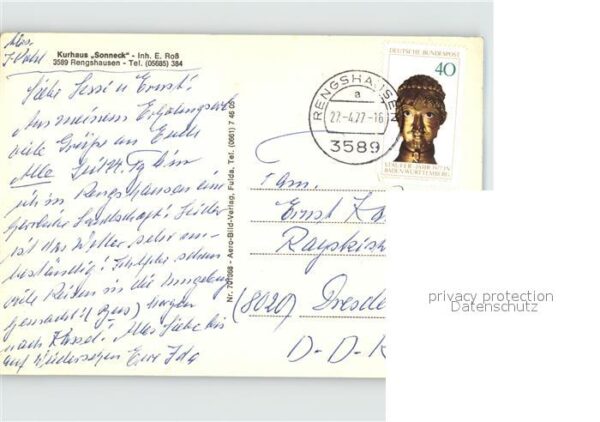 Kurhaus „Sonneck" - Inh. E. Roß
3589 Rengshausen - Tel. (05685) 384
Liebe Jessi u Ernst!
Aus meinem
viele Grüße an Euch
Alle
ich in Rengshausen eine
herrliche Landschaft! Leider
ist das Wetter sehr un-
beständig! schon
viele Reisen in die Umgebung
gemacht! (Bus) morgen
nach Kassel! Alles Liebe bis
auf Wiedersehen Eure Ida
Nr. 701068 - Aero-Bild-Verlag, Fulda, Tel. (0661) 7 46 05
DEUTSCHE BUNDESPOST
40
STAUFER-JAHR 1977 IN
BADEN-WÜRTTEMBERG
RENGSHAUSEN
a
27.-4.77-16
3589
Fam.
Ernst
(8020) Dresde
D-D-R
privacy protection
Datenschutz